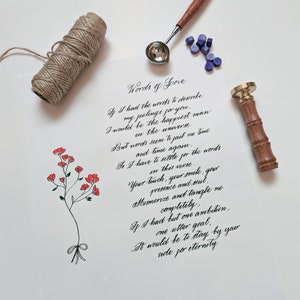 Words of Love
If I had the words to describe
my feelings for you,
I would be the happiest man
in the universe.
But words seem to fail me time
and time again,
So I have to settle for the words
in this verse
Your touch, your smile, your
presence and soul,
Mesmerises and tangle me
completely.
If I had but one ambition,
one utter goal,
It would be to stay by your
side for eternity.